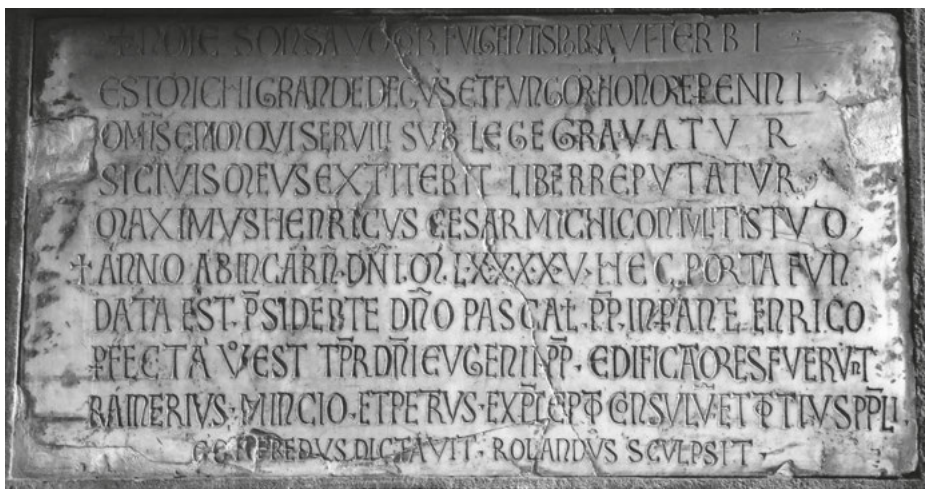 + NOĪE SONSA VOCOR FVLGENTIS PORTA VITERBI
EST MICHI GRANDE DECVS ET FVNGOR HONORE PENNI
OMIS ENIM QVI SERVILI SVB LEGE GRAVATVR
SI CIVIS MEVS EXTITERIT LIBER REPVTATVR
MAXIMVS HENRICVS CESAR MICHI CONTVLIT ISTVD
+ ANNO AB INCARN̄ · DN̄I · M · LXXXXV · HEC PORTA FVN
DATA EST · P̄SIDENTE DN̄O PASCAL · P̄P̄ · INPANTE ENRICO
PFECTA V̊ EST TP̄R DN̄I EVGENII P̄P̄ · EDIFICATORES FVERVNT
RAINERIVS · MINCIO · ET PETRVS · EX P̄CEPTO CONSVLV̄ · ET TOTIVS P̄P̄LI
GEFFREDVS DICTAVIT · ROLANDVS SCVLPSIT ·